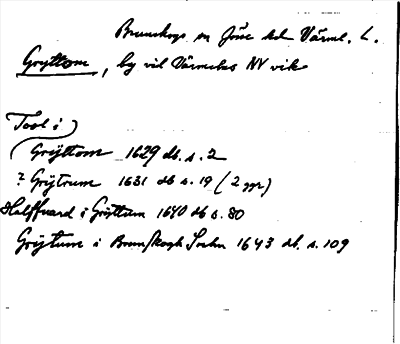 Brunskogs sn Jösse hd Värml. L.
Gryttom, by vid Värmelns NV vik
Tool i
Grÿttom 1629 db. s. 2
? Grÿtrum 1631 db s. 19 (2 ggr)
Halffvard i Grÿttum 1640 db s. 80
Grÿtum i Brunskogh Sochn 1643 db. s. 109